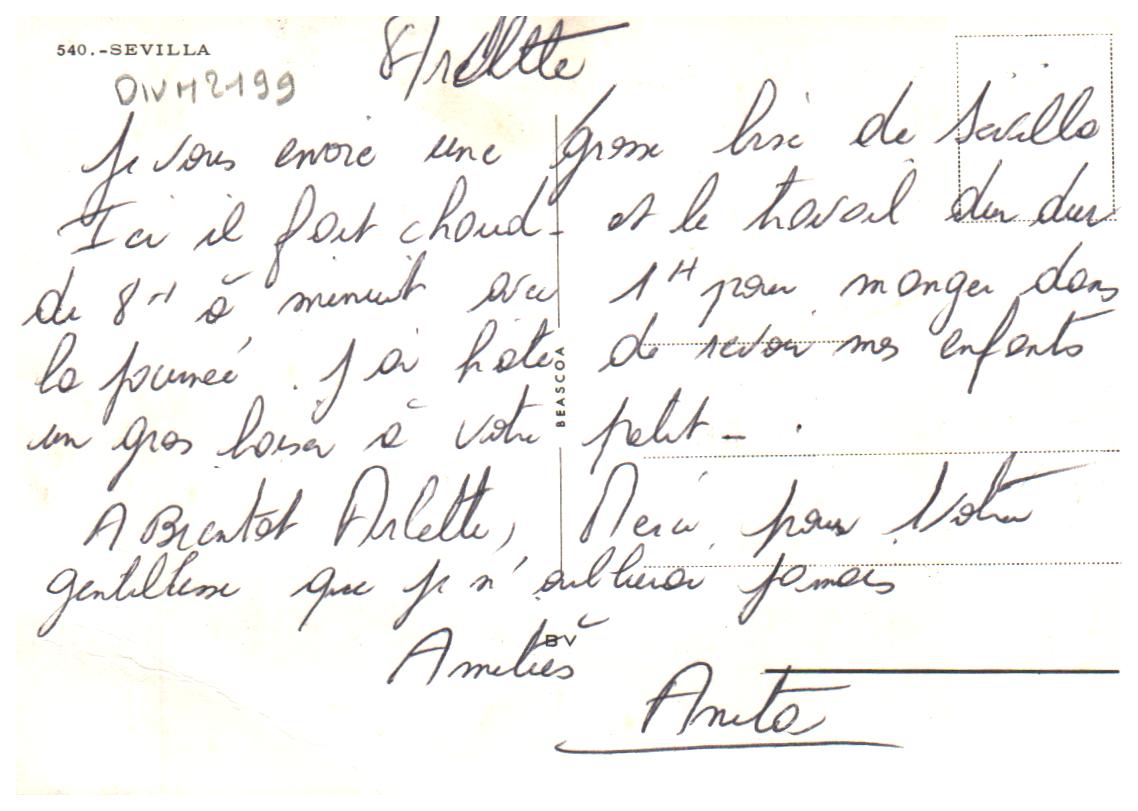 540.-SEVILLA
DIVH2199
Arlette
Je vous envoie une grosse bise de Sevilla
Ici il fait chaud - et le travail dur dur
de 8H à minuit avec 1H pour manger dans
la journeé. J'ai hâte de revoir mes enfants
un gros baiser à votre petit -.
A Bientot Arlette, Merci pour Votre
gentillesse que je n'oublierai jamais
Amitiés
Anita
BEASCOA
BV